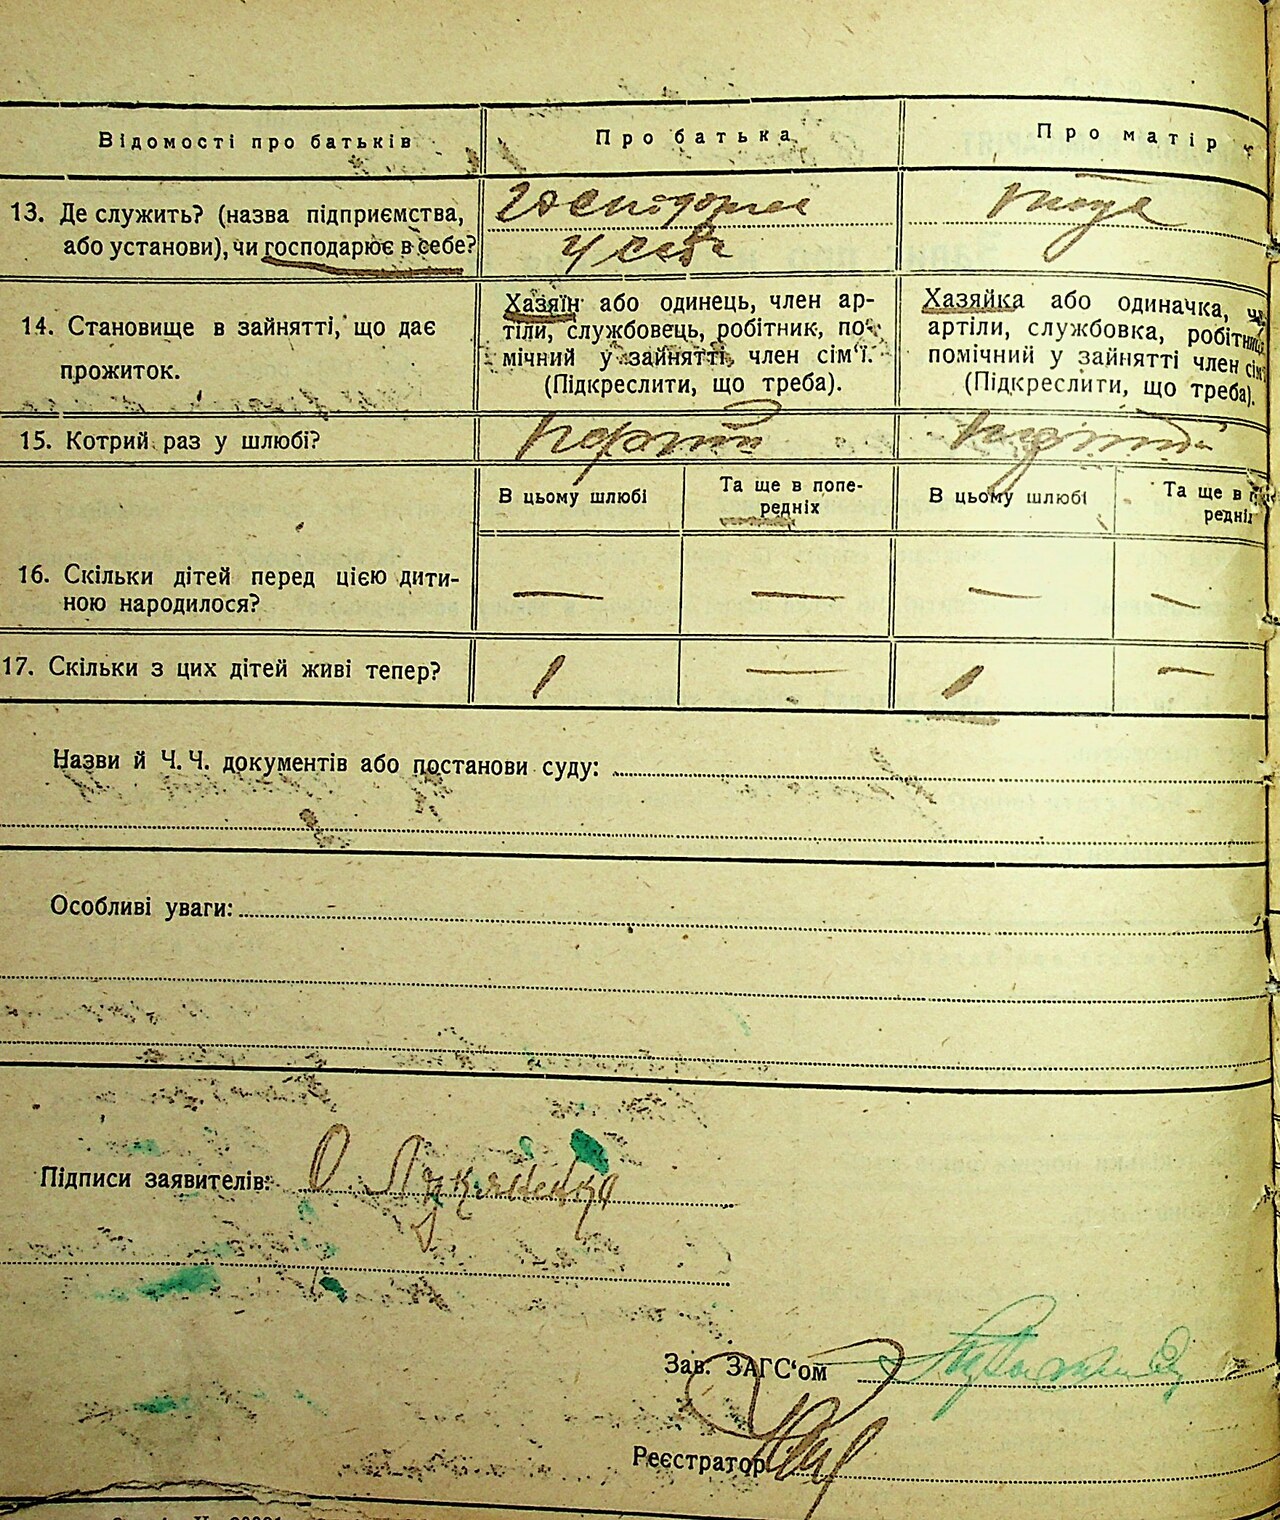 Відомості про батьків
Про батька
Про матір
13. Де служить? (назва підприємства,
або установи), чи господарює в себе?
господарює
у себе
14. Становище в зайнятті, що дає
прожиток.
Хазяїн або одинець, член ар-
тіли, службовець, робітник, по-
мічний у зайнятті, член сім'ї.
(Підкреслити, що треба).
Хазяйка або одиначка,
артіли, службовка, робітниця
помічний у зайнятті член сім'ї
(Підкреслити, що треба).
15. Котрий раз у шлюбі?
первий
первий
В цьому шлюбі
Та ще в попе-
редніх
В цьому шлюбі
Та ще в
редніх
16. Скільки дітей перед цією дити-
ною народилося?
— — — —
17. Скільки з цих дітей живі тепер?
1 — 1 —
Назви й Ч. Ч. документів або постанови суду:
Особливі уваги:
Підписи заявителів:
Зав. ЗАГС'ом
Реєстратор